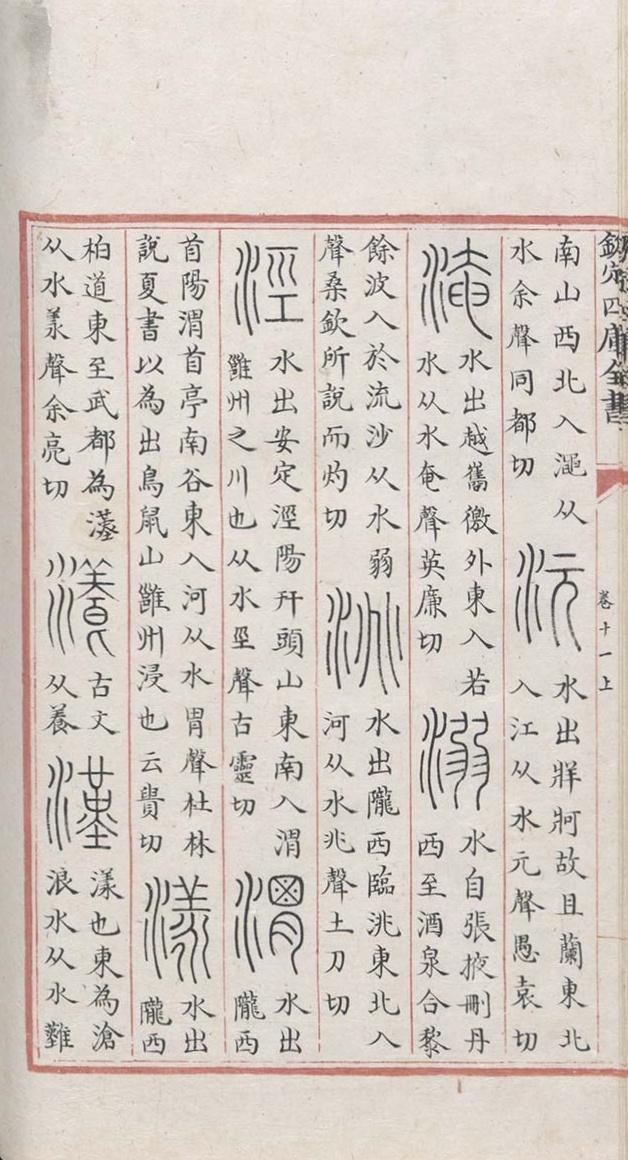 欽定四庫全書
卷十一上
南山西北入澠从
水余聲同都切
沅
水出牂牁故且蘭東北
入江从水元聲愚袁切
淹
水出越巂徼外東入若
水从水奄聲英廉切
溺
水自張掖刪丹
西至酒泉合黎
餘波入於流沙从水弱
聲桑欽所說而灼切
洮
水出隴西臨洮東北入
河从水兆聲土刀切
涇
水出安定涇陽幵頭山東南入渭
雝州之川也从水巠聲古靈切
渭
水出
隴西
首陽渭首亭南谷東入河从水胃聲杜林
說夏書以為出鳥鼠山雝州浸也云貴切
漾
水出
隴西
柏道東至武都為漢
从水羕聲余亮切
瀁
古文
从養
漢
漾也東為滄
浪水从水難